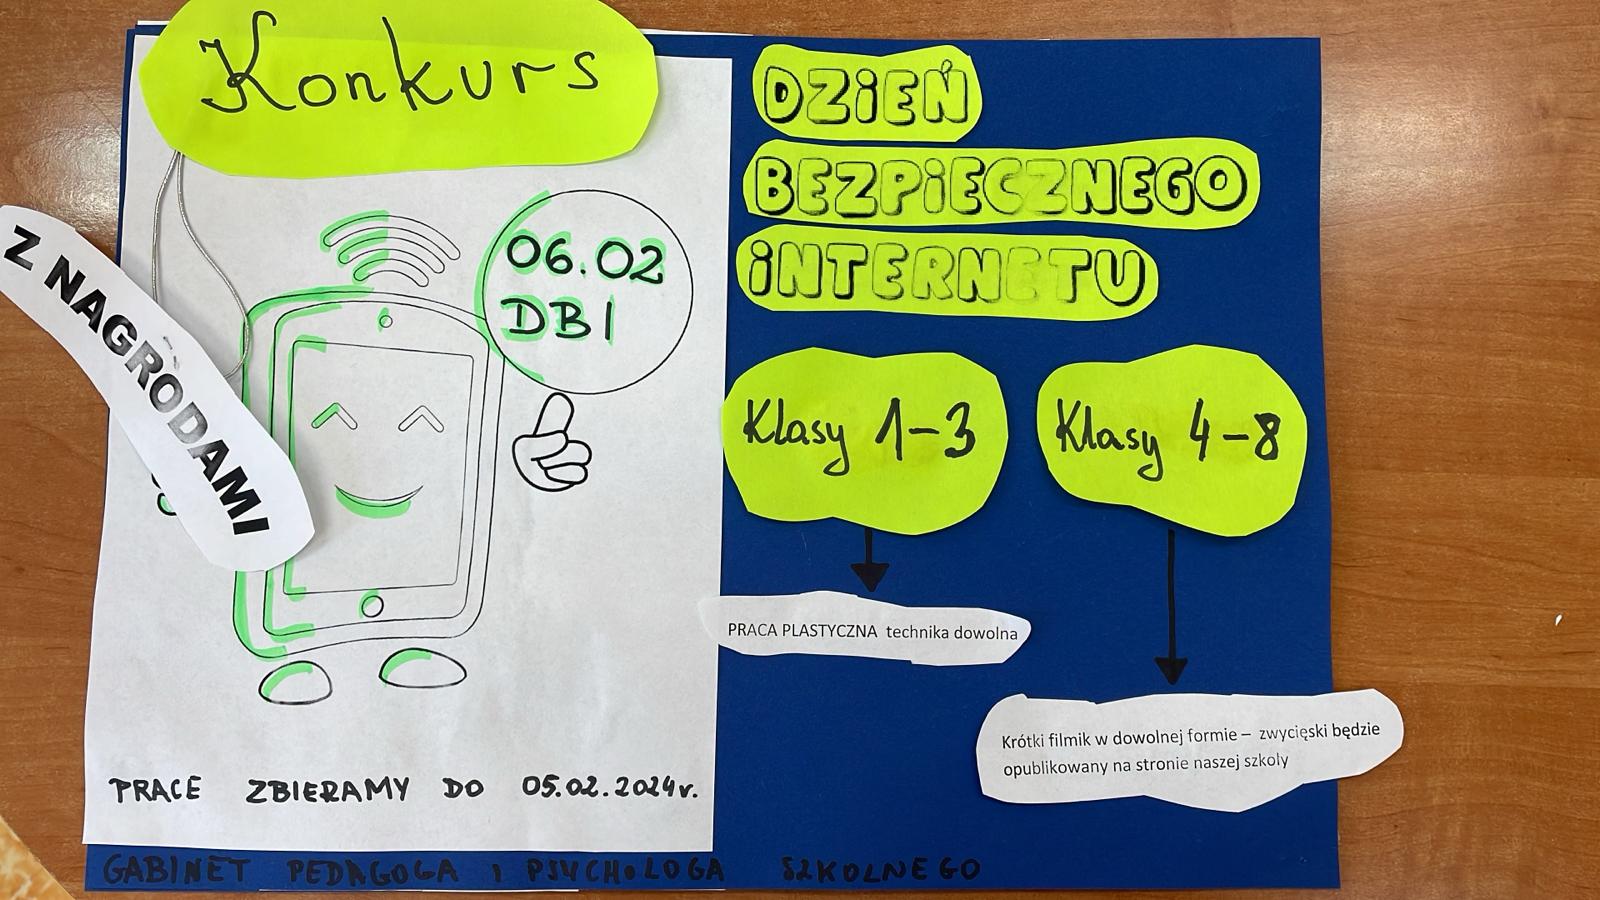 Konkurs
Z NAGRODAMI
06.02
DBI
DZiEŃ
BEZPiECZNEGO
iNTERNETU
Klasy 1-3
Klasy 4-8
PRACA PLASTYCZNA technika dowolna
Krótki filmik w dowolnej formie – zwycięski będzie
opublikowany na stronie naszej szkoly
PRACE ZBIERAMY DO 05.02.2024r.
GABINET PEDAGOGA I PSYCHOLOGA SZKOLNEGO